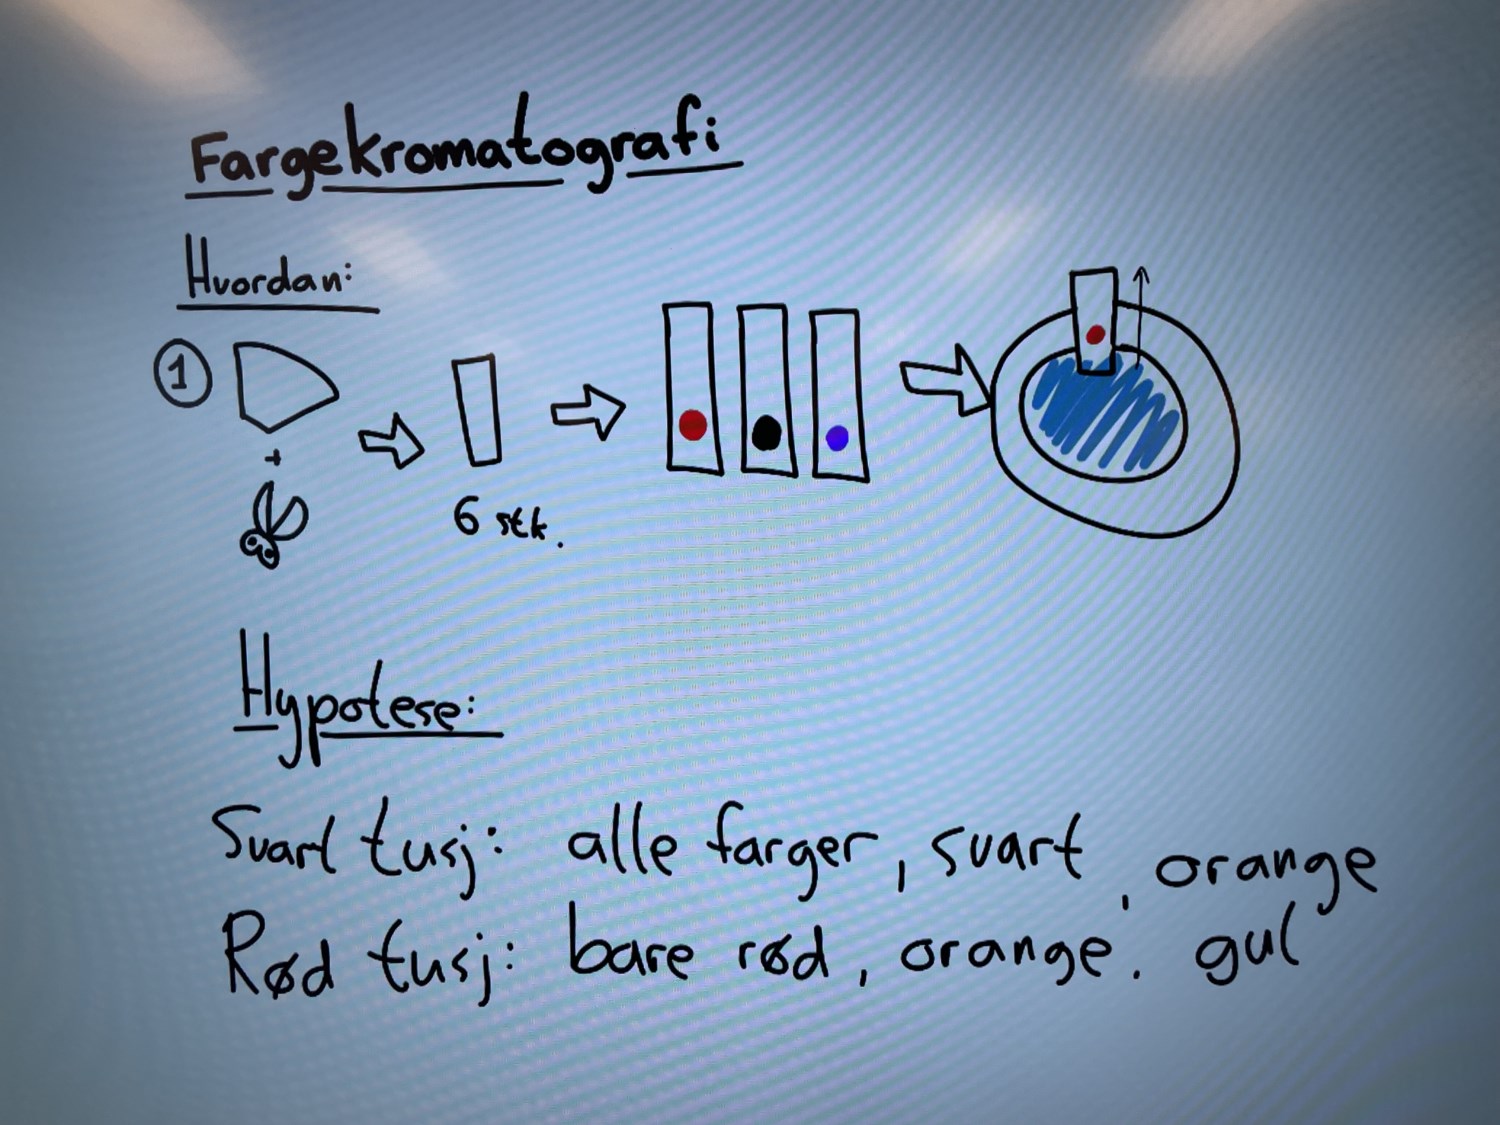 Fargekromatografi
Hvordan:
1
+
6 stk.
Hypotese:
Svart tusj: alle farger, svart, orange
Rød tusj: bare rød, orange. gul